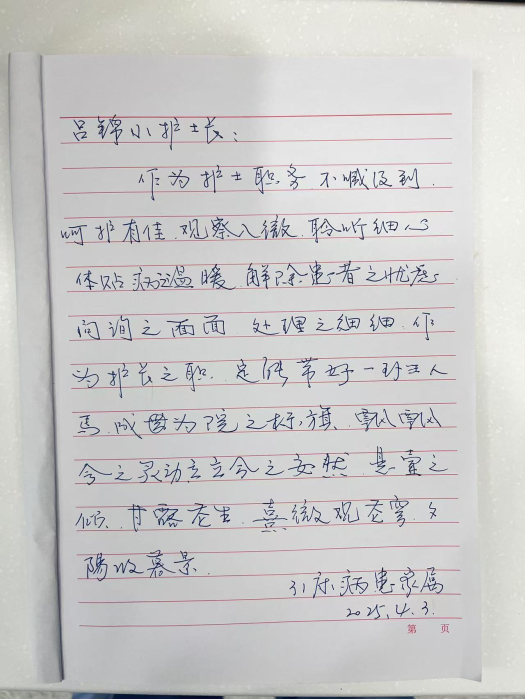 吕锦小护士长：
作为护士职务 不喊没到
呵护有佳 观察入微 聆听细心
体贴病温暖 解除患者之忧虑
问询之面面 处理之细细 作
为护长之职 定能带好一班人
马 成为院之标旗 飘飘
令之灵动 立令之安然 悬壶之
倾 甘露
微观苍穹 夕
阳收暮景
31床病患家属
2025.4.3.
第 页